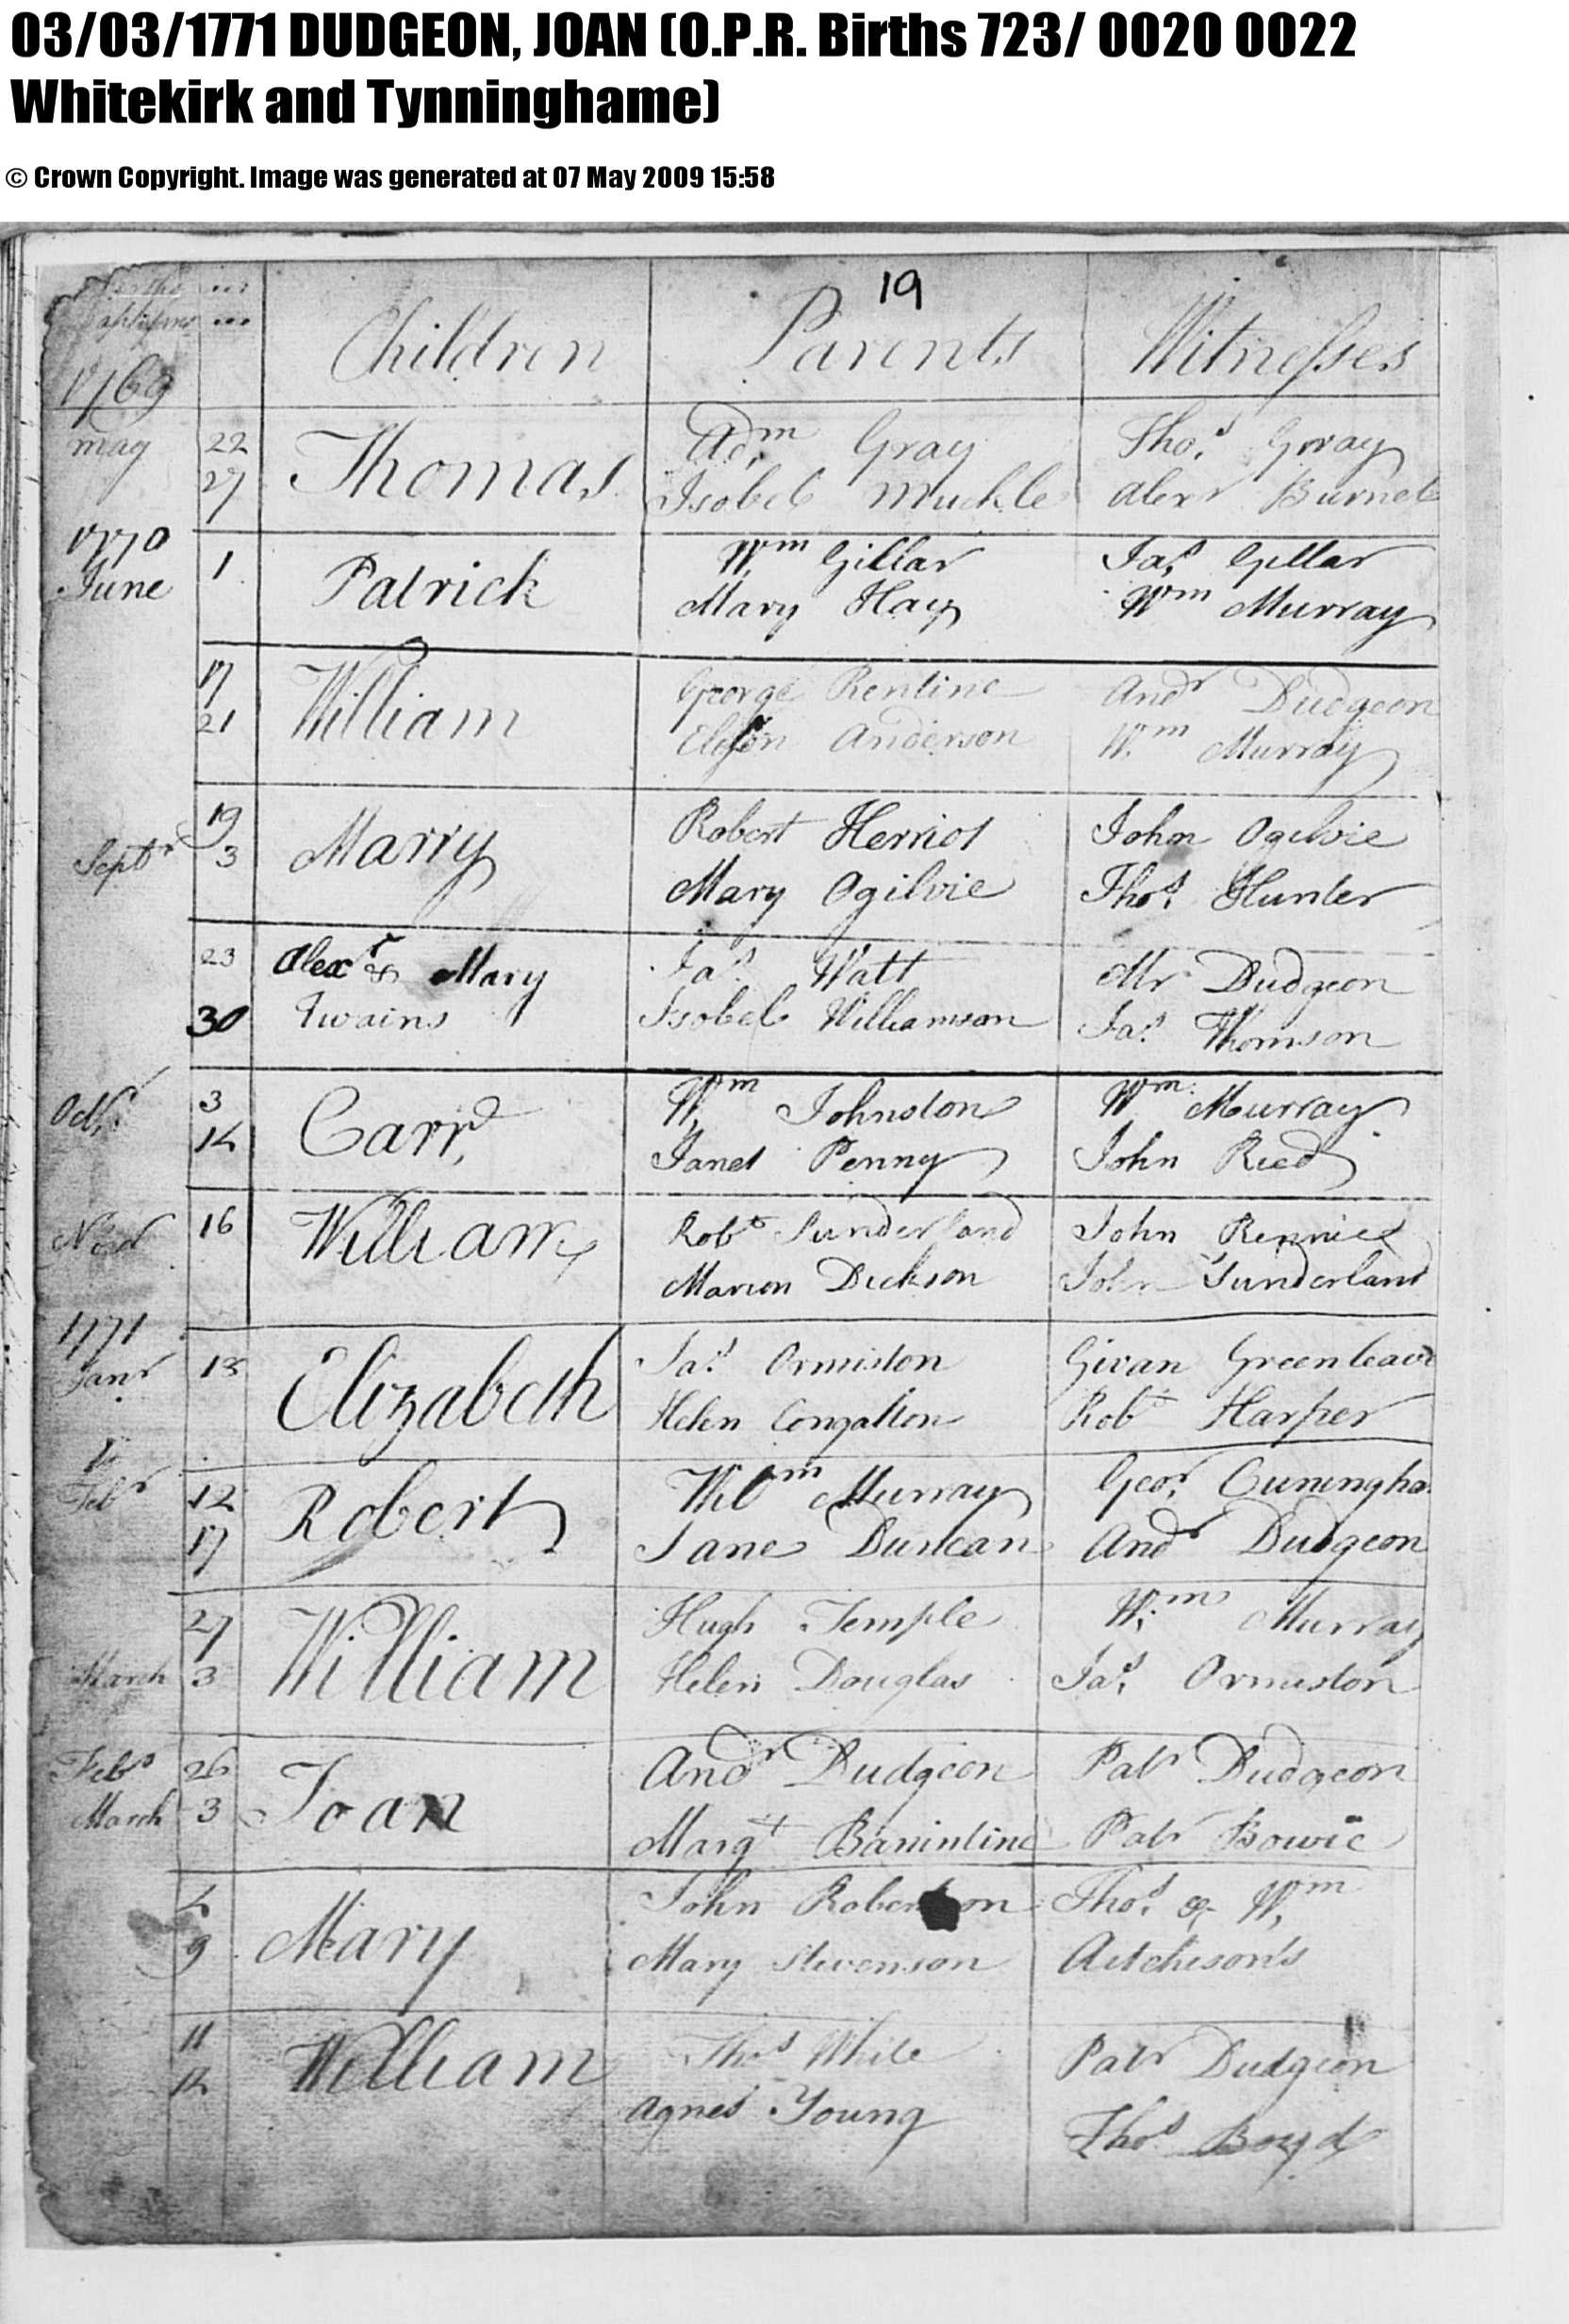 03/03/1771 DUDGEON, JOAN (O.P.R. Births 723/ 0020 0022
Whitekirk and Tynninghame)
© Crown Copyright. Image was generated at 07 May 2009 15:58
19
Births ...
Baptisms ...
Children Parents Witnesses
1769
May 22 Thomas Adm Gray Thos. Gray
27 Isobel Muckle Alexr Burnet
1770
June 1 Patrick Wm Gillar Jas. Gillar
Mary Hay Wm Murray
17 William George Rentine Andr Dudgeon
21 Elison Anderson Wm Murray
19 Marry Robert Herriot John Ogilvie
Septr 3 Mary Ogilvie Thos. Hunter
23 Alexr & Mary Jas. Watt Mr Dudgeon
30 Twains Isobel Williamson Jas. Thomson
Octr. 3 Carr. Wm Johnston Wm. Murray
14 Janet Penny John Ried
Novr 16 William Robt Sunderland John Rennie
Marion Dickson John Sunderland
1771
Janr 18 Elizabeth Jas. Ormiston Givan Greenleave
Helen Congalton Robt Harper
Febr 12 Robert Willm Murray Geor. Cuningha
17 Jane Duncan Andr Dudgeon
27 William Hugh Temple Wm Murray
March 3 Helen Douglas Jas. Ormiston
Febr 26 Joan Andr Dudgeon Patr Dudgeon
March 3 Margt Banintine Patr Bowie
4 Mary John Roberson Thos. & Wm
9 Mary Stevenson Aitchesons
11 William Thos White Patr Dudgeon
14 Agnes Young Thos. Boyd